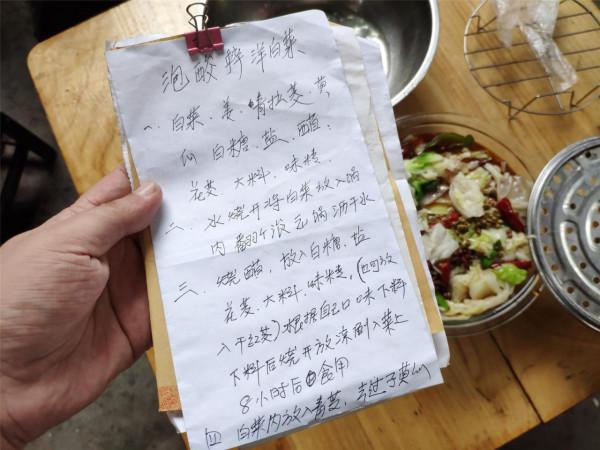 泡酸辣洋白菜
一、白菜、姜、青拉姜、黄
瓜 白糖、盐、醋、
花姜、大料、味精、
二、水烧开将白菜放入锅
内翻个滚元锅沥干水
三、烧醋,放入白糖、盐
花姜、大料、味精,(也可放
入干红姜)根据自己口味下料
下料后烧开放凉倒入菜上
8小时后食用
四 白菜内放入青姜,